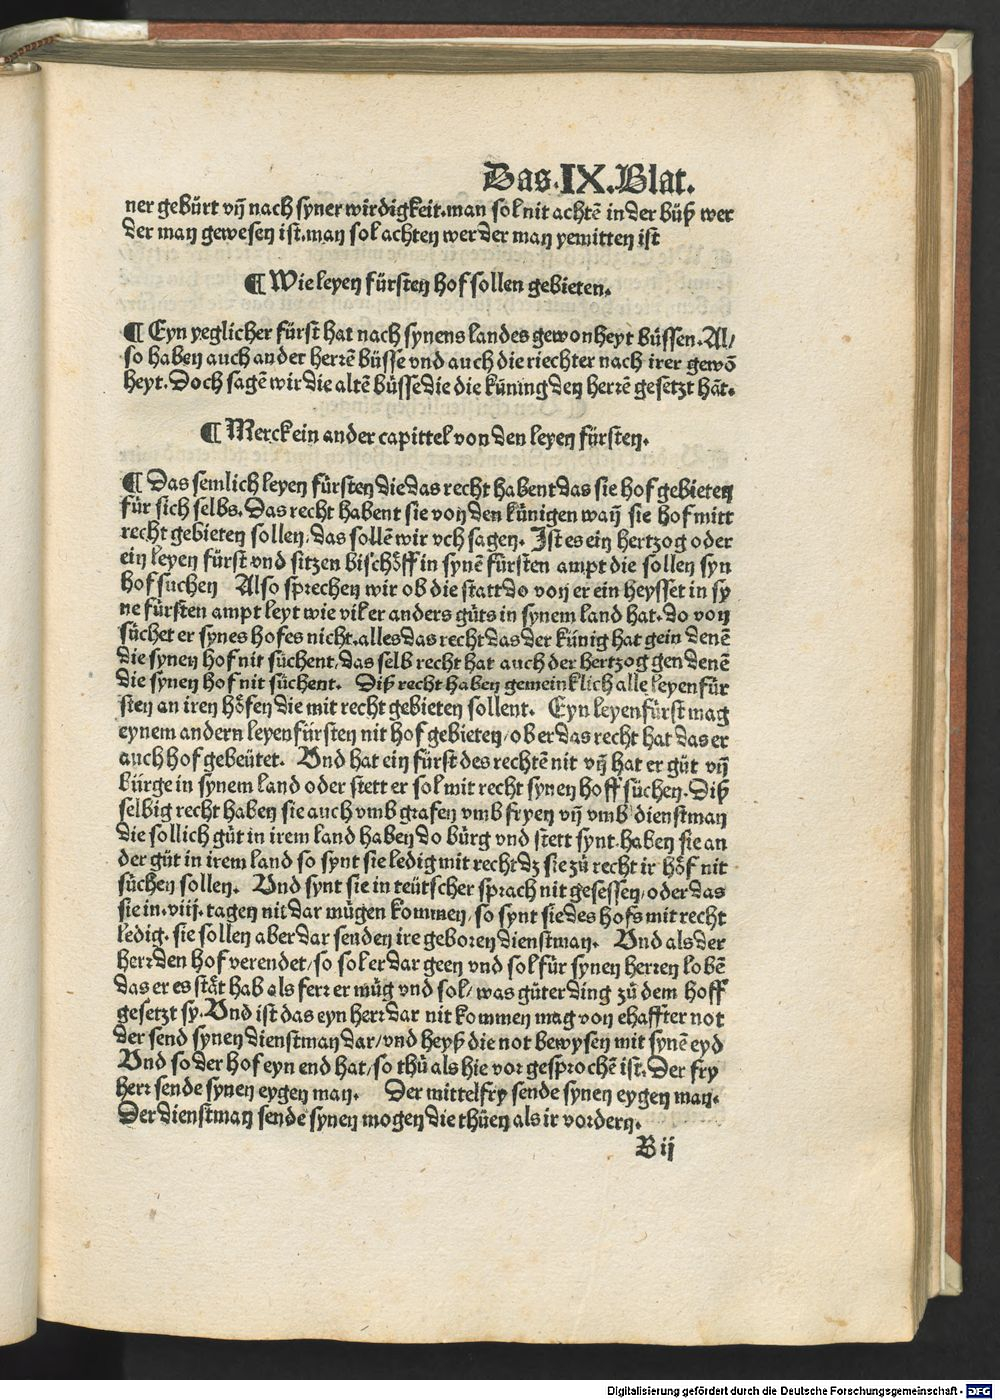 Das.IX.Blat.
ner gebürt vñ nach syner wirdigkeit.man sol nit achtē in der büß wer
der man gewesen ist.man sol achten wer der man yemitten ist
¶ Wie leyen fürsten hof sollen gebieten.
¶ Eyn yeglicher fürst hat nach synens landes gewonheyt büssen.Al/
so haben auch ander herrē büsse vnd auch die riechter nach irer gewō
heyt.Doch sagē wir die altē büsse die die küning den herrē gesetzt hāt.
¶ Merck ein ander capittel von den leyen fürsten.
¶ Das semlich leyen fürsten die das recht habent das sie hof gebieten
für sich selbs.Das recht habent sie von den künigen wañ sie hof mitt
recht gebieten sollen/das sollē wir vch sagen. Ist es ein hertzog oder
ein leyen fürst vnd sitzen bischöff in synē fürsten ampt die sollen syn
hof suchen Also sprechen wir ob die statt do von er ein heysset in sy
ne fürsten ampt leyt wie vil er anders güts in synem land hat.do von
süchet er synes hofes nicht.alles das recht das der künig hat gein denē
die synen hof nit süchent/das selb recht hat auch der hertzog gen denē
die synen hof nit süchent. Diß recht haben gemeinklich alle leyen für
sten an iren höfen die mit recht gebieten sollent. Eyn leyen fürst mag
eynem andern leyen fürsten nit hof gebieten/ob er das recht hat das er
auch hof gebeütet. Vnd hat ein fürst des rechtē nit vñ hat er güt vñ
bürge in synem land oder stett er sol mit recht synen hoff süchen.Diß
selbig recht haben sie auch vmb grafen vmb fryen vñ vmb dienstman
die sollich güt in irem land haben do bürg vnd stett synt.haben sie an
der güt in irem land so synt sie ledig mit recht dz sie zü recht ir höf nit
süchen sollen. Vnd synt sie in teütscher sprach nit gesessen/oder das
sie in.viij.tagen nit dar mügen kommen/so synt sie des hofs mit recht
ledig.sie sollen aber dar senden ire geboren dienstman. Vnd als der
herr den hof verendet/so sol er dar geen vnd sol für synen herren lobē
das er es stät hab als ferr er müg vnd sol/was güter ding zü dem hoff
gesetzt sy.Vnd ist das eyn herr dar nit kommen mag von ehaffter not
der send synen dienstman dar/vnd heyß die not bewysen mit synē eyd
Vnd so der hof eyn end hat/so thü als hie vor gesprochē ist.Der fry
herr sende synen eygen man. Der mittelfry sende synen eygen man.
Der dienstman sende synen mogen die thüen als ir vordern.
B ij
Digitalisierung gefördert durch die Deutsche Forschungsgemeinschaft - DFG